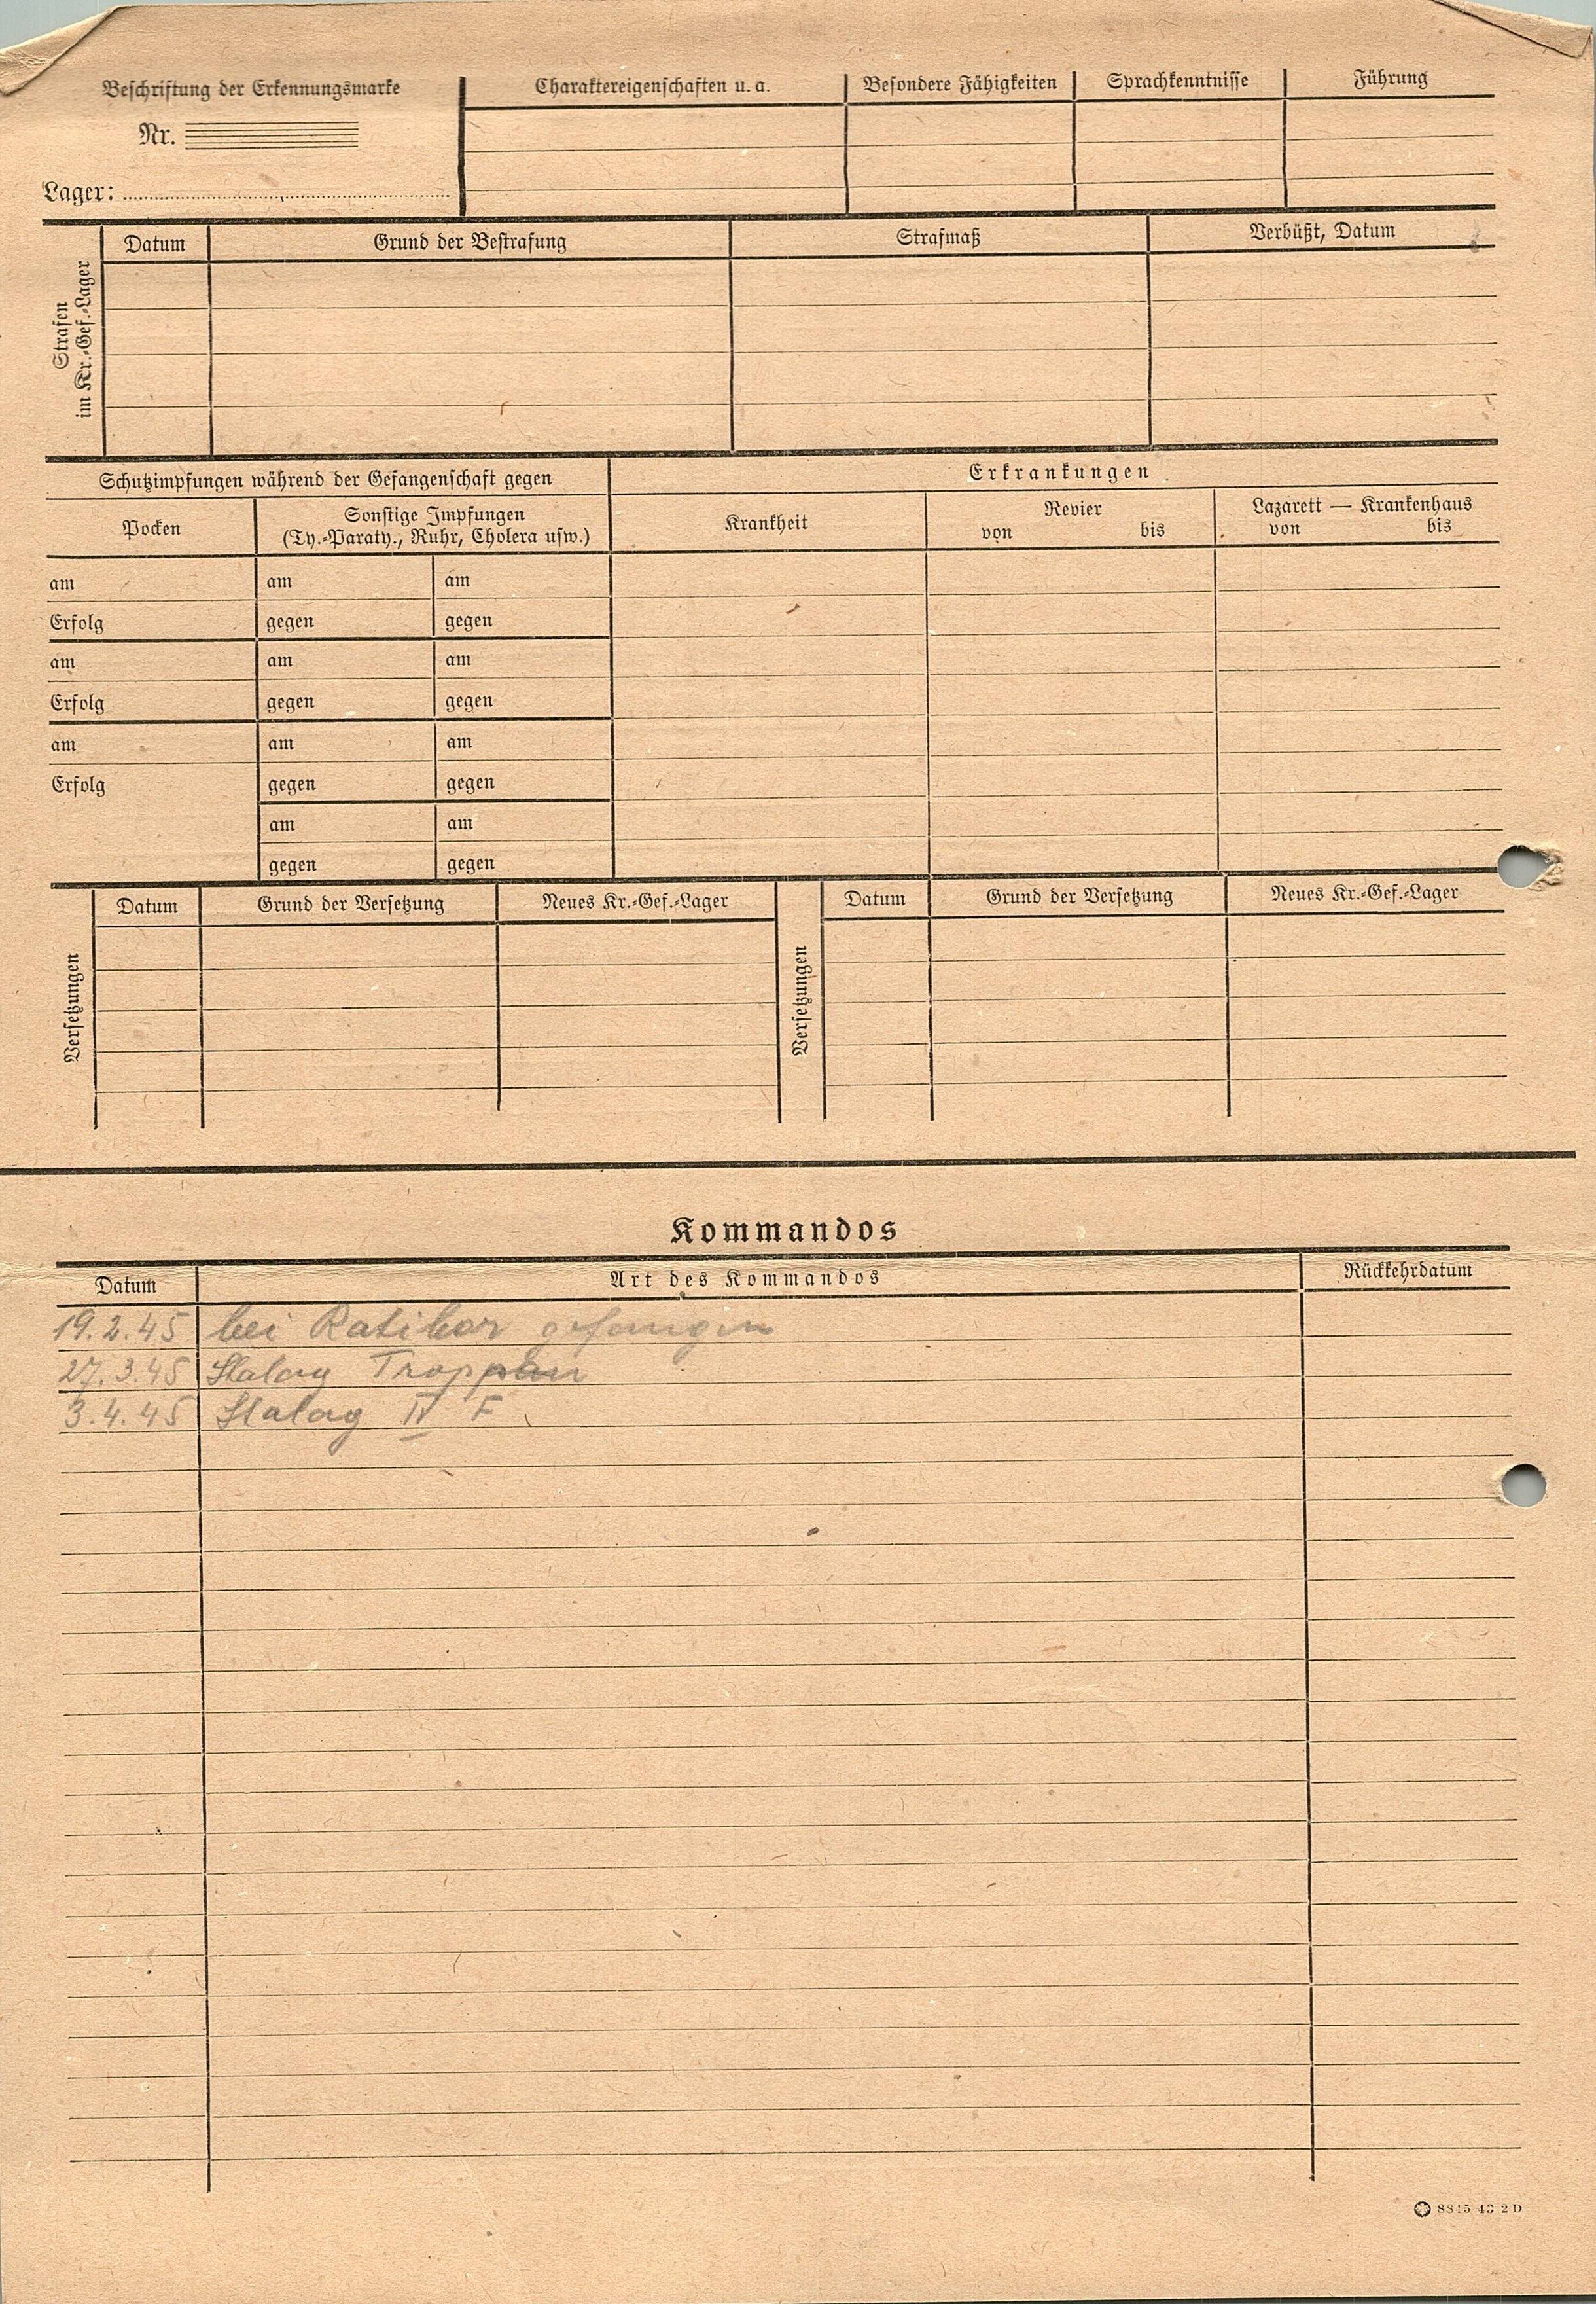 Beschriftung der Erkennungsmarke
Nr.
Lager:
Charaktereigenschaften u. a.
Besondere Fähigkeiten
Sprachkenntnisse
Führung
Strafen
im Kr.-Gef.-Lager
Datum
Grund der Bestrafung
Strafmaß
Verbüßt, Datum
Schutzimpfungen während der Gefangenschaft gegen
Pocken
Sonstige Impfungen
(Ty.-Paraty., Ruhr, Cholera usw.)
am am am
Erfolg gegen gegen
am am am
Erfolg gegen gegen
am am am
Erfolg gegen gegen
am am
gegen gegen
Erkrankungen
Krankheit
Revier
von bis
Lazarett — Krankenhaus
von bis
Versetzungen
Datum
Grund der Versetzung
Neues Kr.-Gef.-Lager
Versetzungen
Datum
Grund der Versetzung
Neues Kr.-Gef.-Lager
Kommandos
Datum Art des Kommandos Rückkehrdatum
19.2.45 bei Ratibor gefangen
27.3.45 Stalag Troppau
3.4.45 Stalag IV F
43 2 D